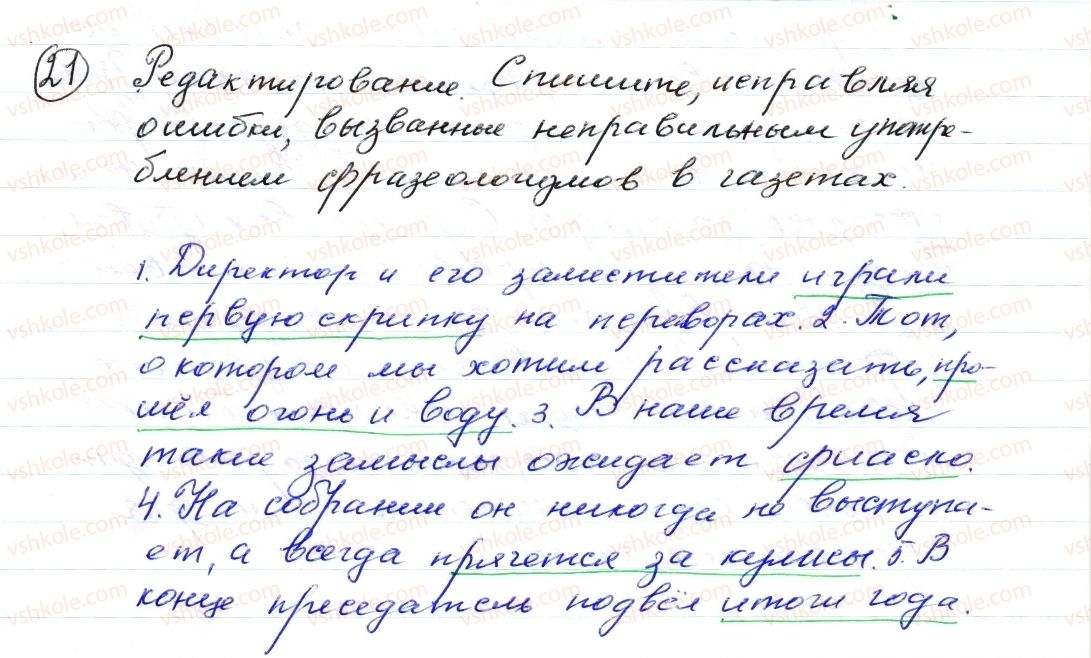 21 Редактирование. Спишите, исправляя
ошибки, вызванные неправильным употре-
блением фразеологизмов в газетах.
1. Директор и его заместители играли
первую скрипку на переворах. 2. Тот,
о котором мы хотим рассказать, про-
шёл огонь и воду. 3. В наше время
такие замыслы ожидает фиаско.
4. На собрании он никогда не выступа-
ет, а всегда прячется за кулисы. 5. В
конце преседатель подвёл итоги года.